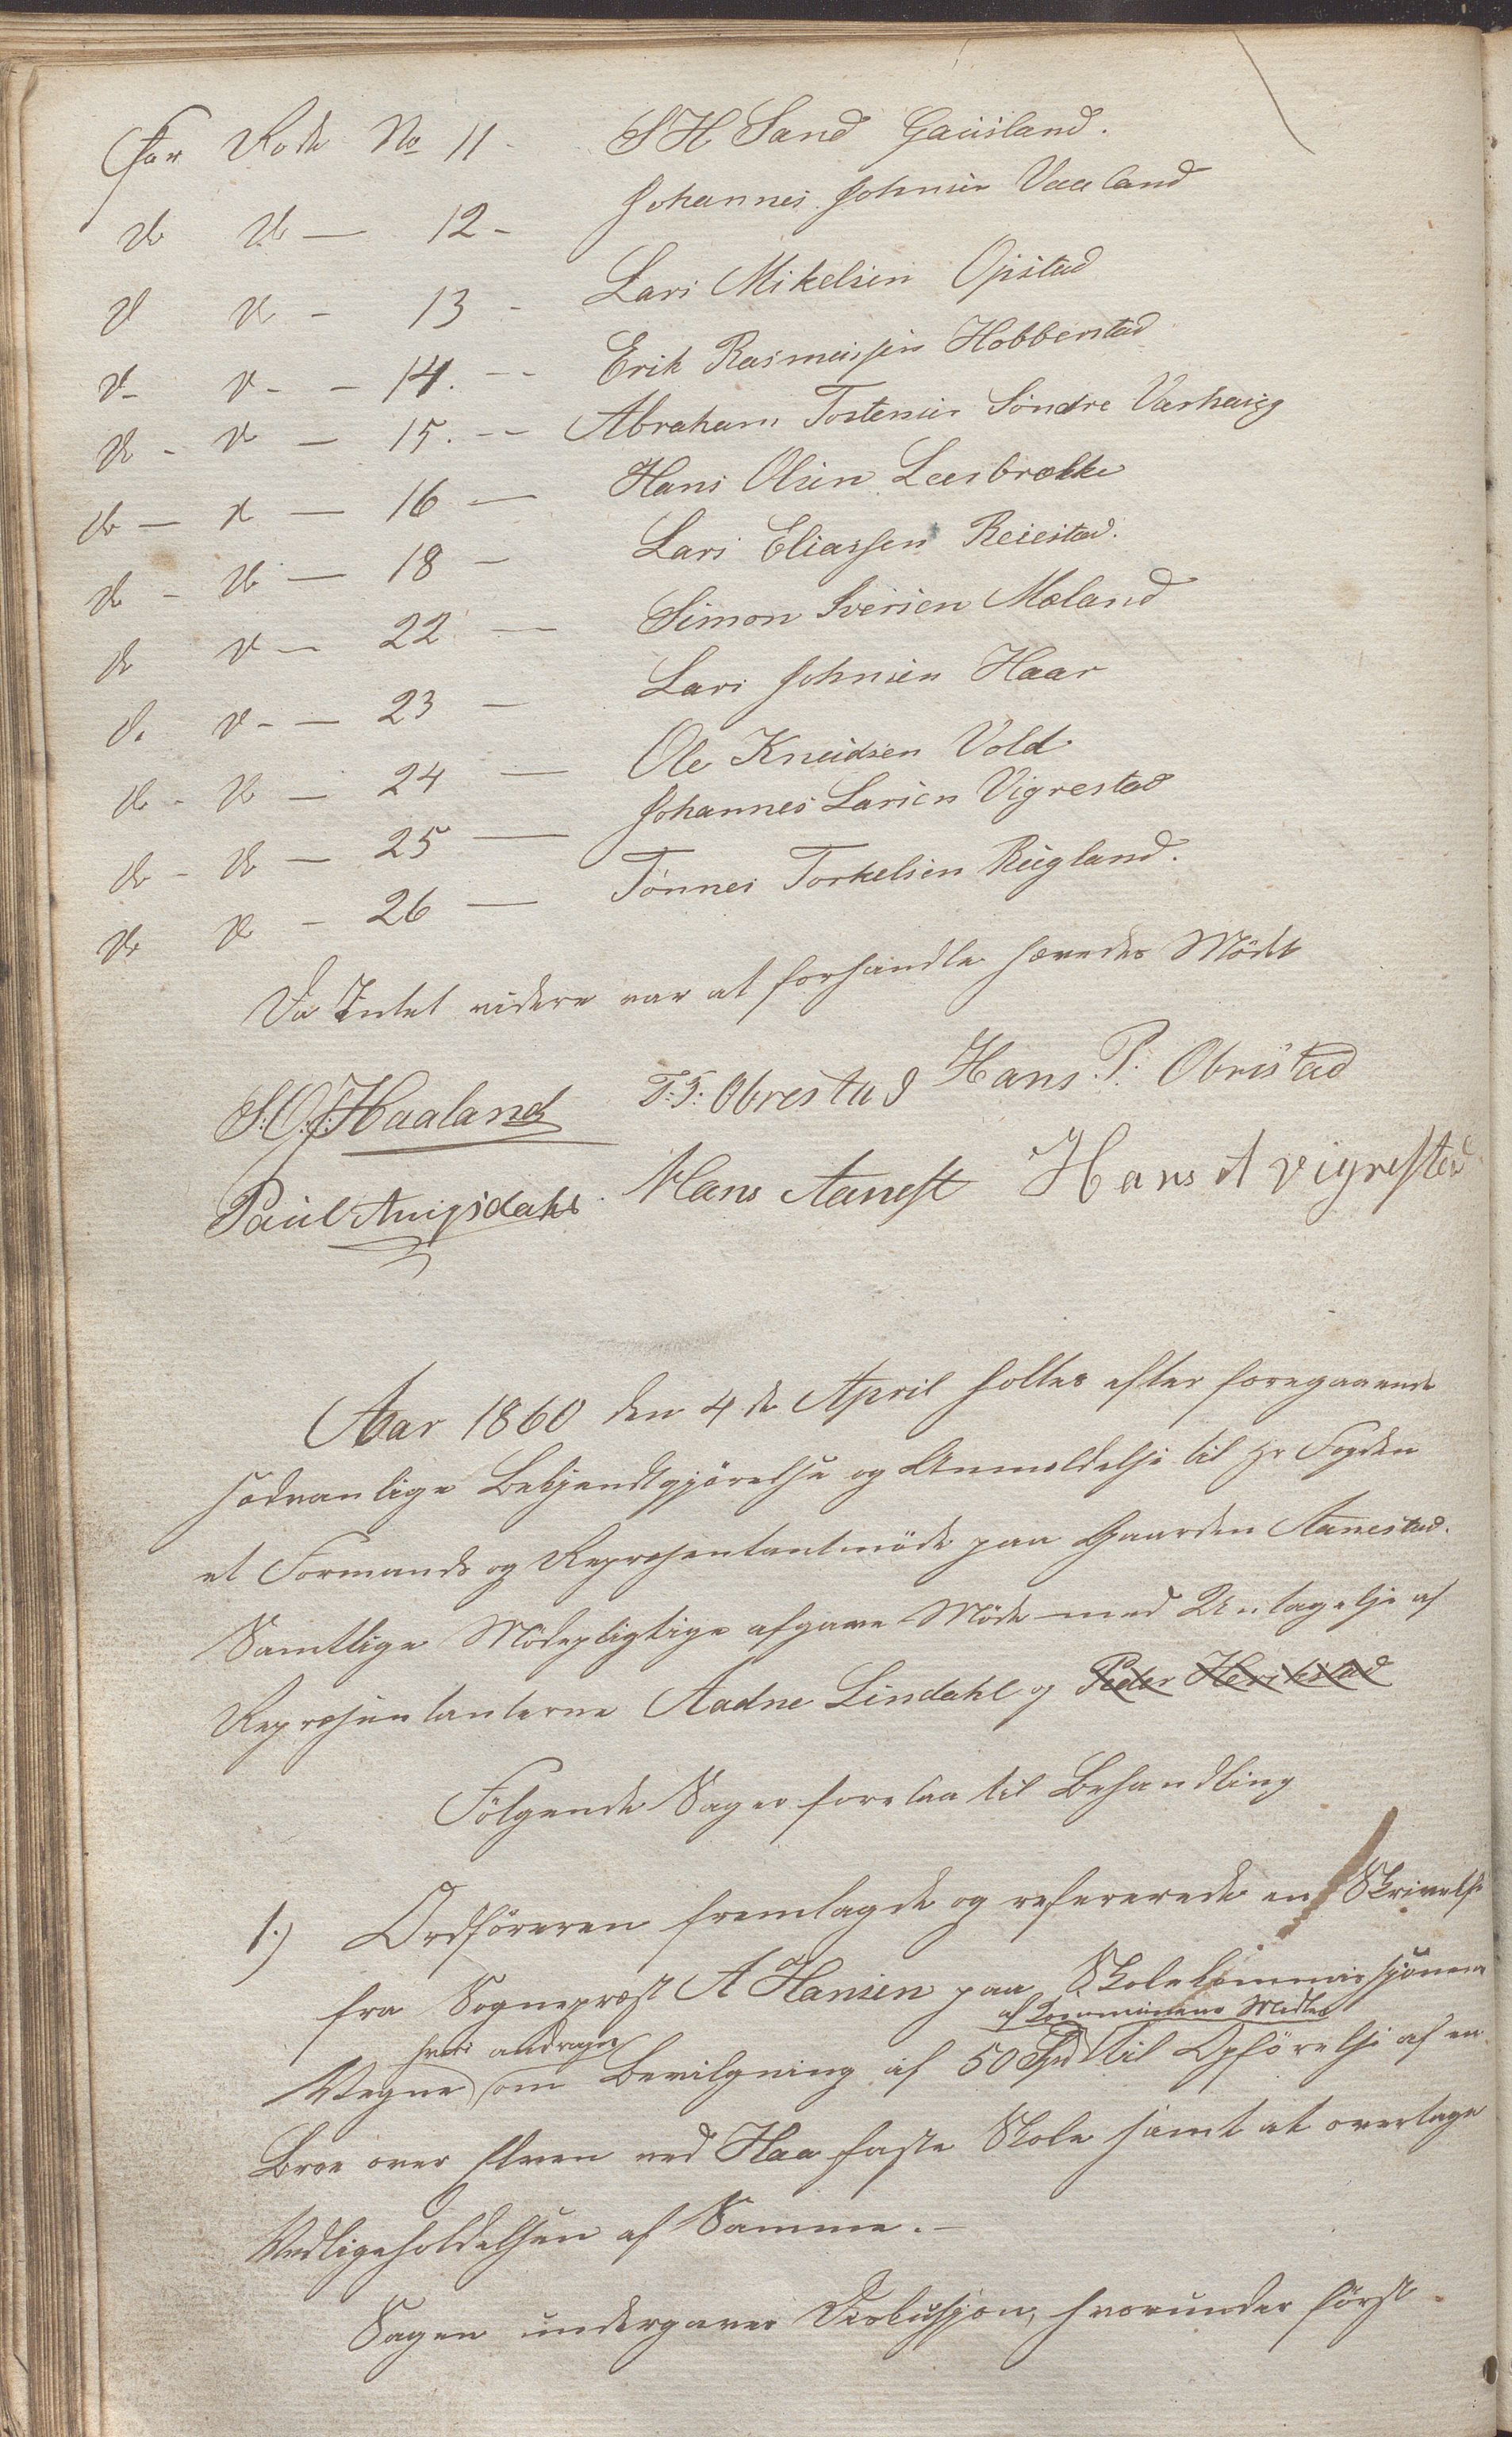 For Rode No 11 - S H Sand Gausland.
do do — 12 - Johannes Johnsen Vaaland
do do - 13 - Lars Mikelsen Opstad
do - do - - 14. - - Erik Rasmussen Hobberstad
do - do — 15. - - Abraham Tostensen Söndre Varhaug
do — do — 16 — Hans Olsen Leerbrække
do - do — 18 - Lars Eliassen Reiestad.
do do — 22 — Simon Sversen Mæland
do. do - — 23 — Lars Johnsen Haar
do - do — 24 — Ole Knudsen Vold
do - do — 25 — Johannes Larsen Vigrestad
do do - 26 — Tönnes Torkelsen Rugland.
Da Intet videre var at forhandle hævedes Mödet
S. O. Haaland T: T: Obrestad Hans. P: Obrestad
Paul Auigsdahl. Hans Aanest Hans A vigrestad
Aar 1860 den 4de April holtes efter foregaaende
sedvanlige Bekjendtgjörelse og Anmeldelse til Hr Fogden
et Formands og Repræsentantmöde paa Gaarden Aanestad.
Samtlige Mödepligtige afgave Möde med Untagelse af
Repræsentanterne Aadne Lindahl og Peder Herikstad
Fölgende Sager forelaa til Behandling
1.) Ordföreren fremlagde og refererede en Skrivelse
fra Sognepræst A Hansen paa Skolekommissjonens
hvori andrages af Kommunens Midler
Vegne om Bevilgning af 50 Spd til Opförelse af en
Broe over Elven ved Haa faste Skole samt at overtage
Vedligeholdelsen af Samme. -
Sagen undergaves Diskussjon, hvorunder först